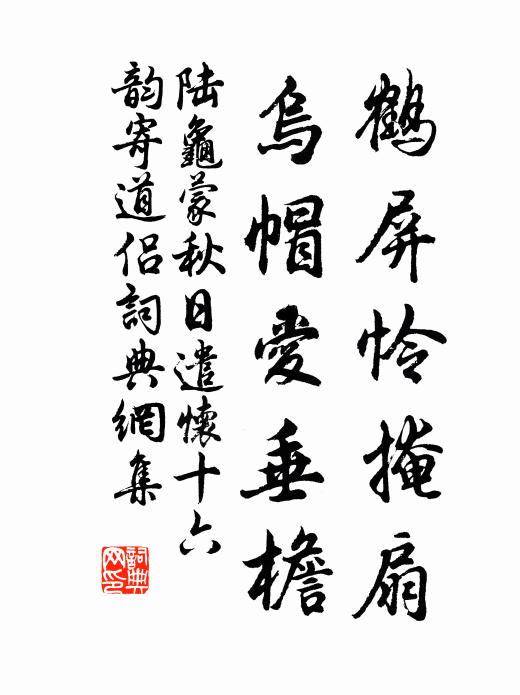 鹤屏怜掩扇
烏帽愛垂檐
陆龜蒙秋日遣懷十六
韵寄道侣詞典網集
詞典網印